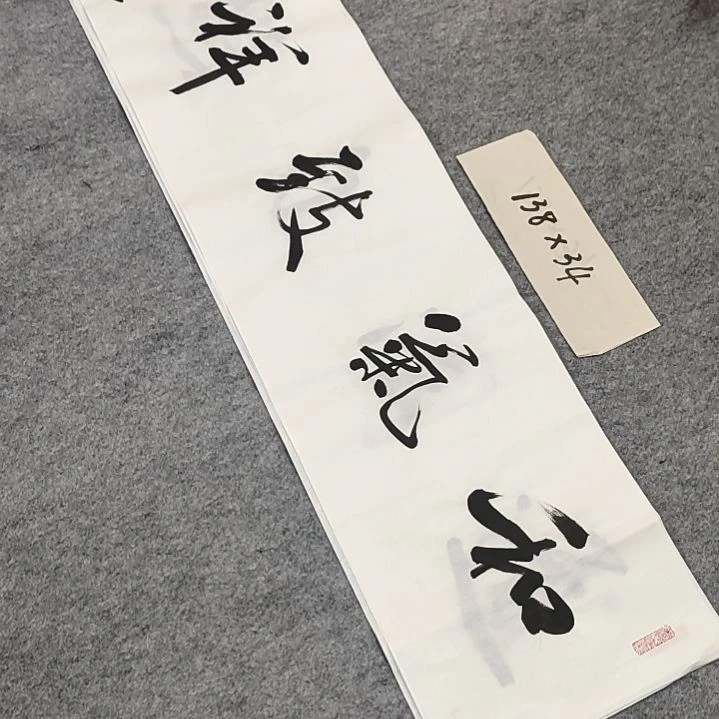 和氣致祥
138×34